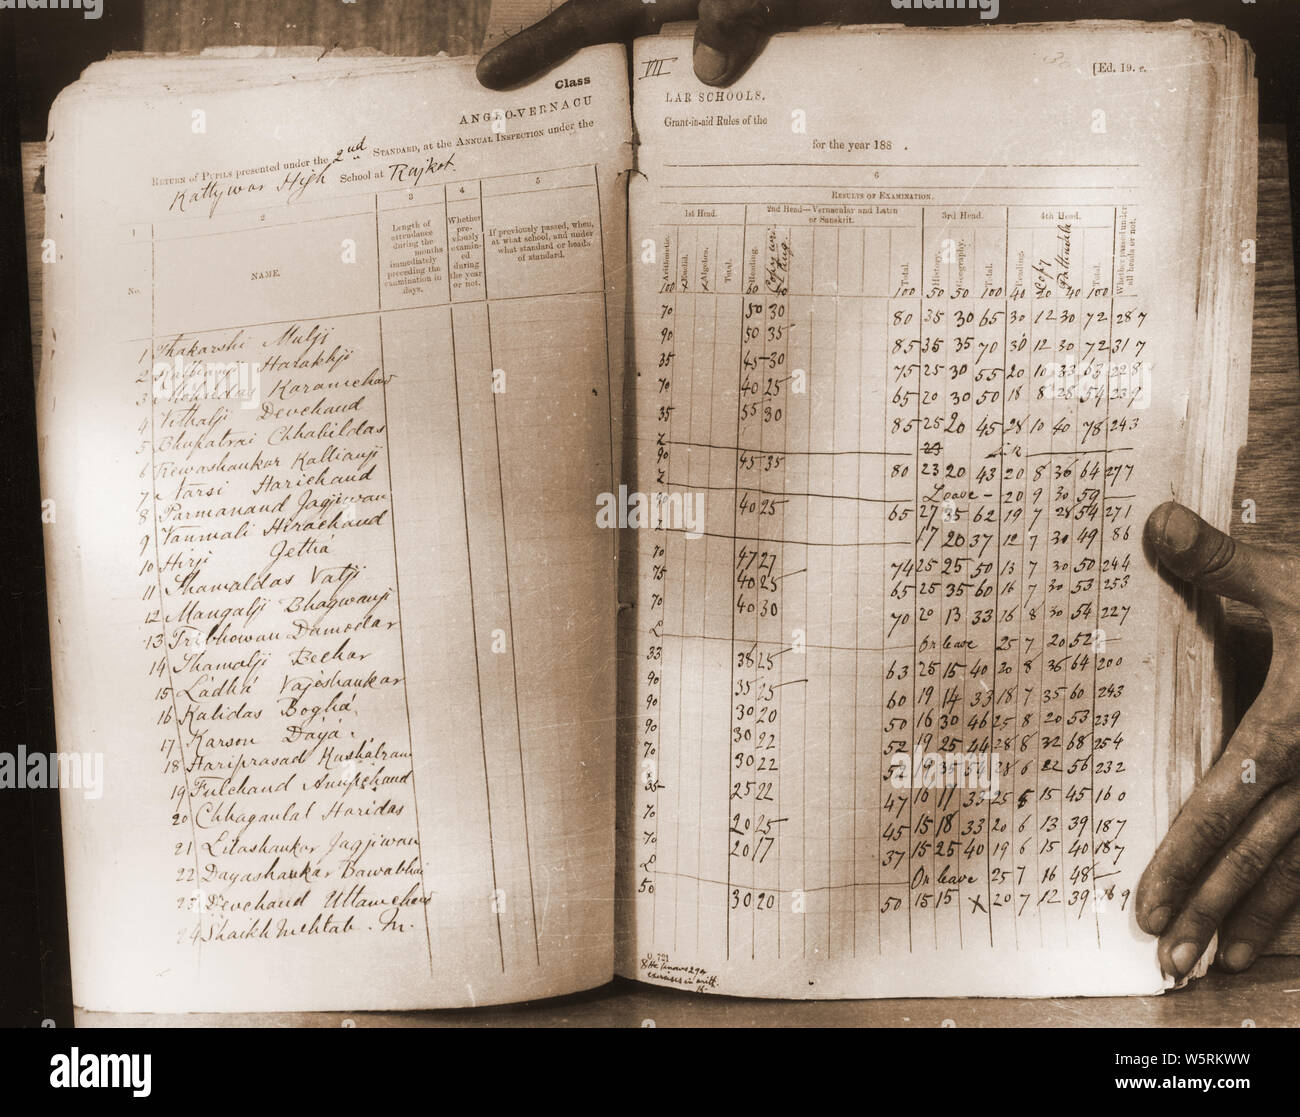 Class
ANGLO-VERNACU
RETURN of PUPILS presented under the 2nd STANDARD, at the ANNUAL INSPECTION under the
Kattywar High School at Rajkot.
1
2
3
4
5
No.
NAME.
Length of attendance during the months immediately preceding the examination in days.
Whether previously examined during the year or not.
If previously passed, when, at what school, and under what standard or heads of standard.
1 Thakarshi Mulji
2 Kallianji Harakhji
3 Karamchand
4 Vithalji Devchand
5 Bhupatrai Chhabildas
6 Rewashankar Kallianji
7 Narsi Harichand
8 Parmanand Jagjiwan
9 Vanmali Hirachand
10 Hirji Jethá
11 Shamaldas Valji
12 Mangalji Bhagwanji
13 Tribhowan Damodar
14 Shamalji Bechar
15 Ládhá Vajeshankar
16 Kalidas Boghá
17 Karson Dáyá
18 Hariprasad Kushalram
19 Fulchand Anupchand
20 Chhaganlal Haridas
21 Lilashankar Jagjiwan
22 Dayashankar Bawabhai
23 Devchand Uttamchand
24 Shaikh Mehtab. M.
VII
[Ed. 19. e.
LAR SCHOOLS.
Grant-in-aid Rules of the
for the year 188 .
6
RESULTS OF EXAMINATION.
1st Head.
2nd Head—Vernacular and Latin or Sanskrit.
3rd Head.
4th Head.
Arithmetic.
Euclid.
Algebra.
Total.
Reading.
Total.
History.
Geography.
Total.
Reading.
Copy
Total.
Whether passed under all heads or not.
100 60 40 100 50 50 100 40 20 40 100
70 50 30 80 35 30 65 30 12 30 72 287
90 50 35 85 35 35 70 30 12 30 72 317
35 45 30 75 25 30 55 20 10 33 63 228
70 40 25 65 20 30 50 18 8 28 54 239
35 55 30 85 25 20 45 28 10 40 78 243
90 45 35 80 23 20 43 20 8 36 64 277
Leave - 20 9 30 59
40 25 65 27 35 62 19 7 28 54 271
17 20 37 12 7 30 49 86
70 47 27 74 25 25 50 13 7 30 50 244
75 40 25 65 25 35 60 16 7 30 53 253
70 40 30 70 20 13 33 16 8 30 54 227
L On leave 25 7 20 52
33 38 25 63 25 15 40 20 8 36 64 200
90 35 25 60 19 14 33 18 7 35 60 243
90 30 20 50 16 30 46 25 8 20 53 239
90 30 22 52 19 25 44 28 8 32 68 254
70 30 22 52 19 35 54 28 6 22 56 232
35 25 22 47 16 17 33 25 5 15 45 160
70 20 25 45 15 18 33 20 6 13 39 187
70 20 17 37 15 25 40 19 6 15 40 187
L On leave 25 7 16 48
50 30 20 50 15 15 X 20 7 12 39 169
U. 721
alamy
alamy
Image ID: W5RKWW
www.alamy.com